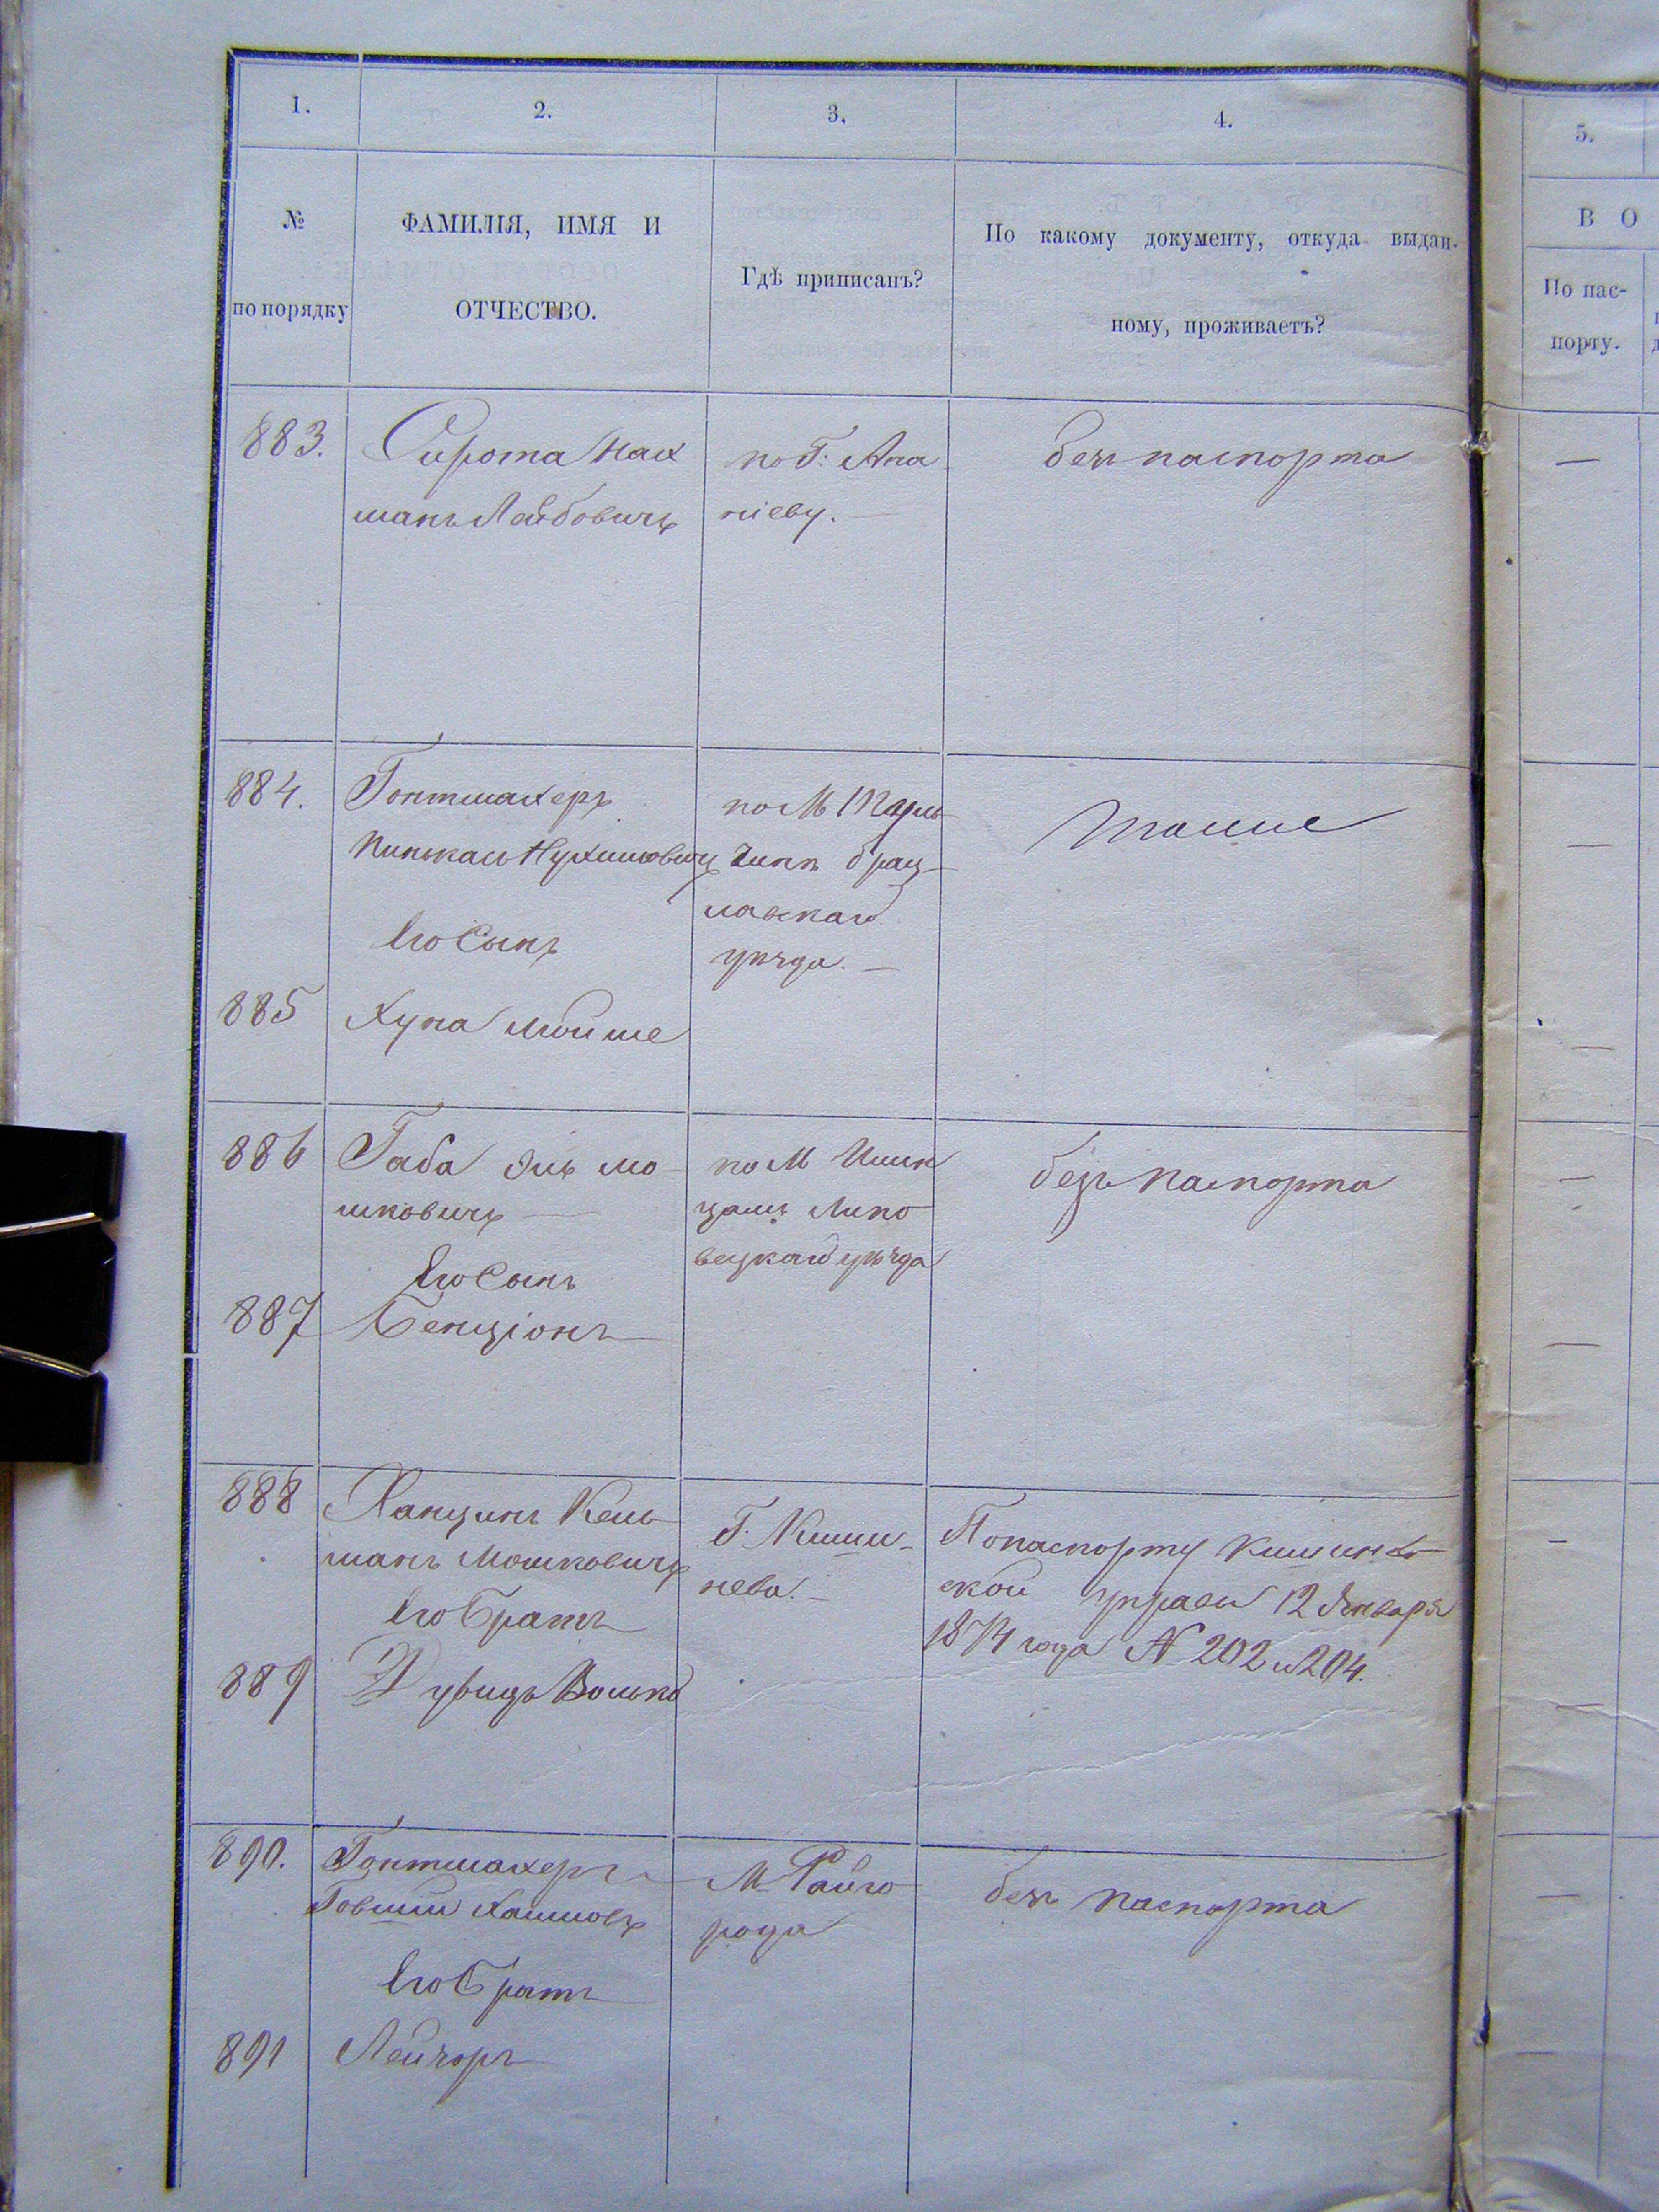 1. 2. 3. 4. 5.
№ по порядку
ФАМИЛІЯ, ИМЯ И
ОТЧЕСТВО.
Гдѣ приписанъ?
По какому документу, откуда выдан-
ному, проживаетъ?
В О
По пас-
порту.
883. Сирота Нах
манъ Лейбовичъ
по Г: Ана
ніеву. —
безъ паспорта
—
884. Гонтмахеръ
Пинькас Нухимовичъ
по М
чикъ брац-
лавскаго
уѣзда. —
тоже
—
Его Сынъ
885 Хуна Мойше
—
886 Габа Эль Мо-
шковичъ —
по М Илин
цамъ Липо
вецкаго уѣзда
безъ паспорта
—
Его Сынъ
887 Бенціонъ
—
888 Ханцинъ Кель-
манъ Мошковичъ
Г. Киши-
нева. —
По паспорту Кишинев-
ской управы 12 Января
1874 года № 202 и 204.
—
Его Братъ
889 Дувидъ Волько
—
890. Гонтмахеръ
Говшій Хаимовъ
М. Райго
рода
безъ паспорта
—
Его Братъ
891 Лейзоръ